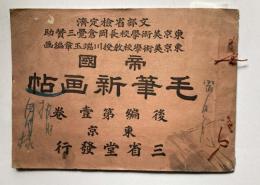 文部省檢定濟
東京美術學校長岡倉覺三贊助
東京美術學校教授川端玉章編画
帝國
毛筆新画帖
後編第壹卷
東京
三省堂發行